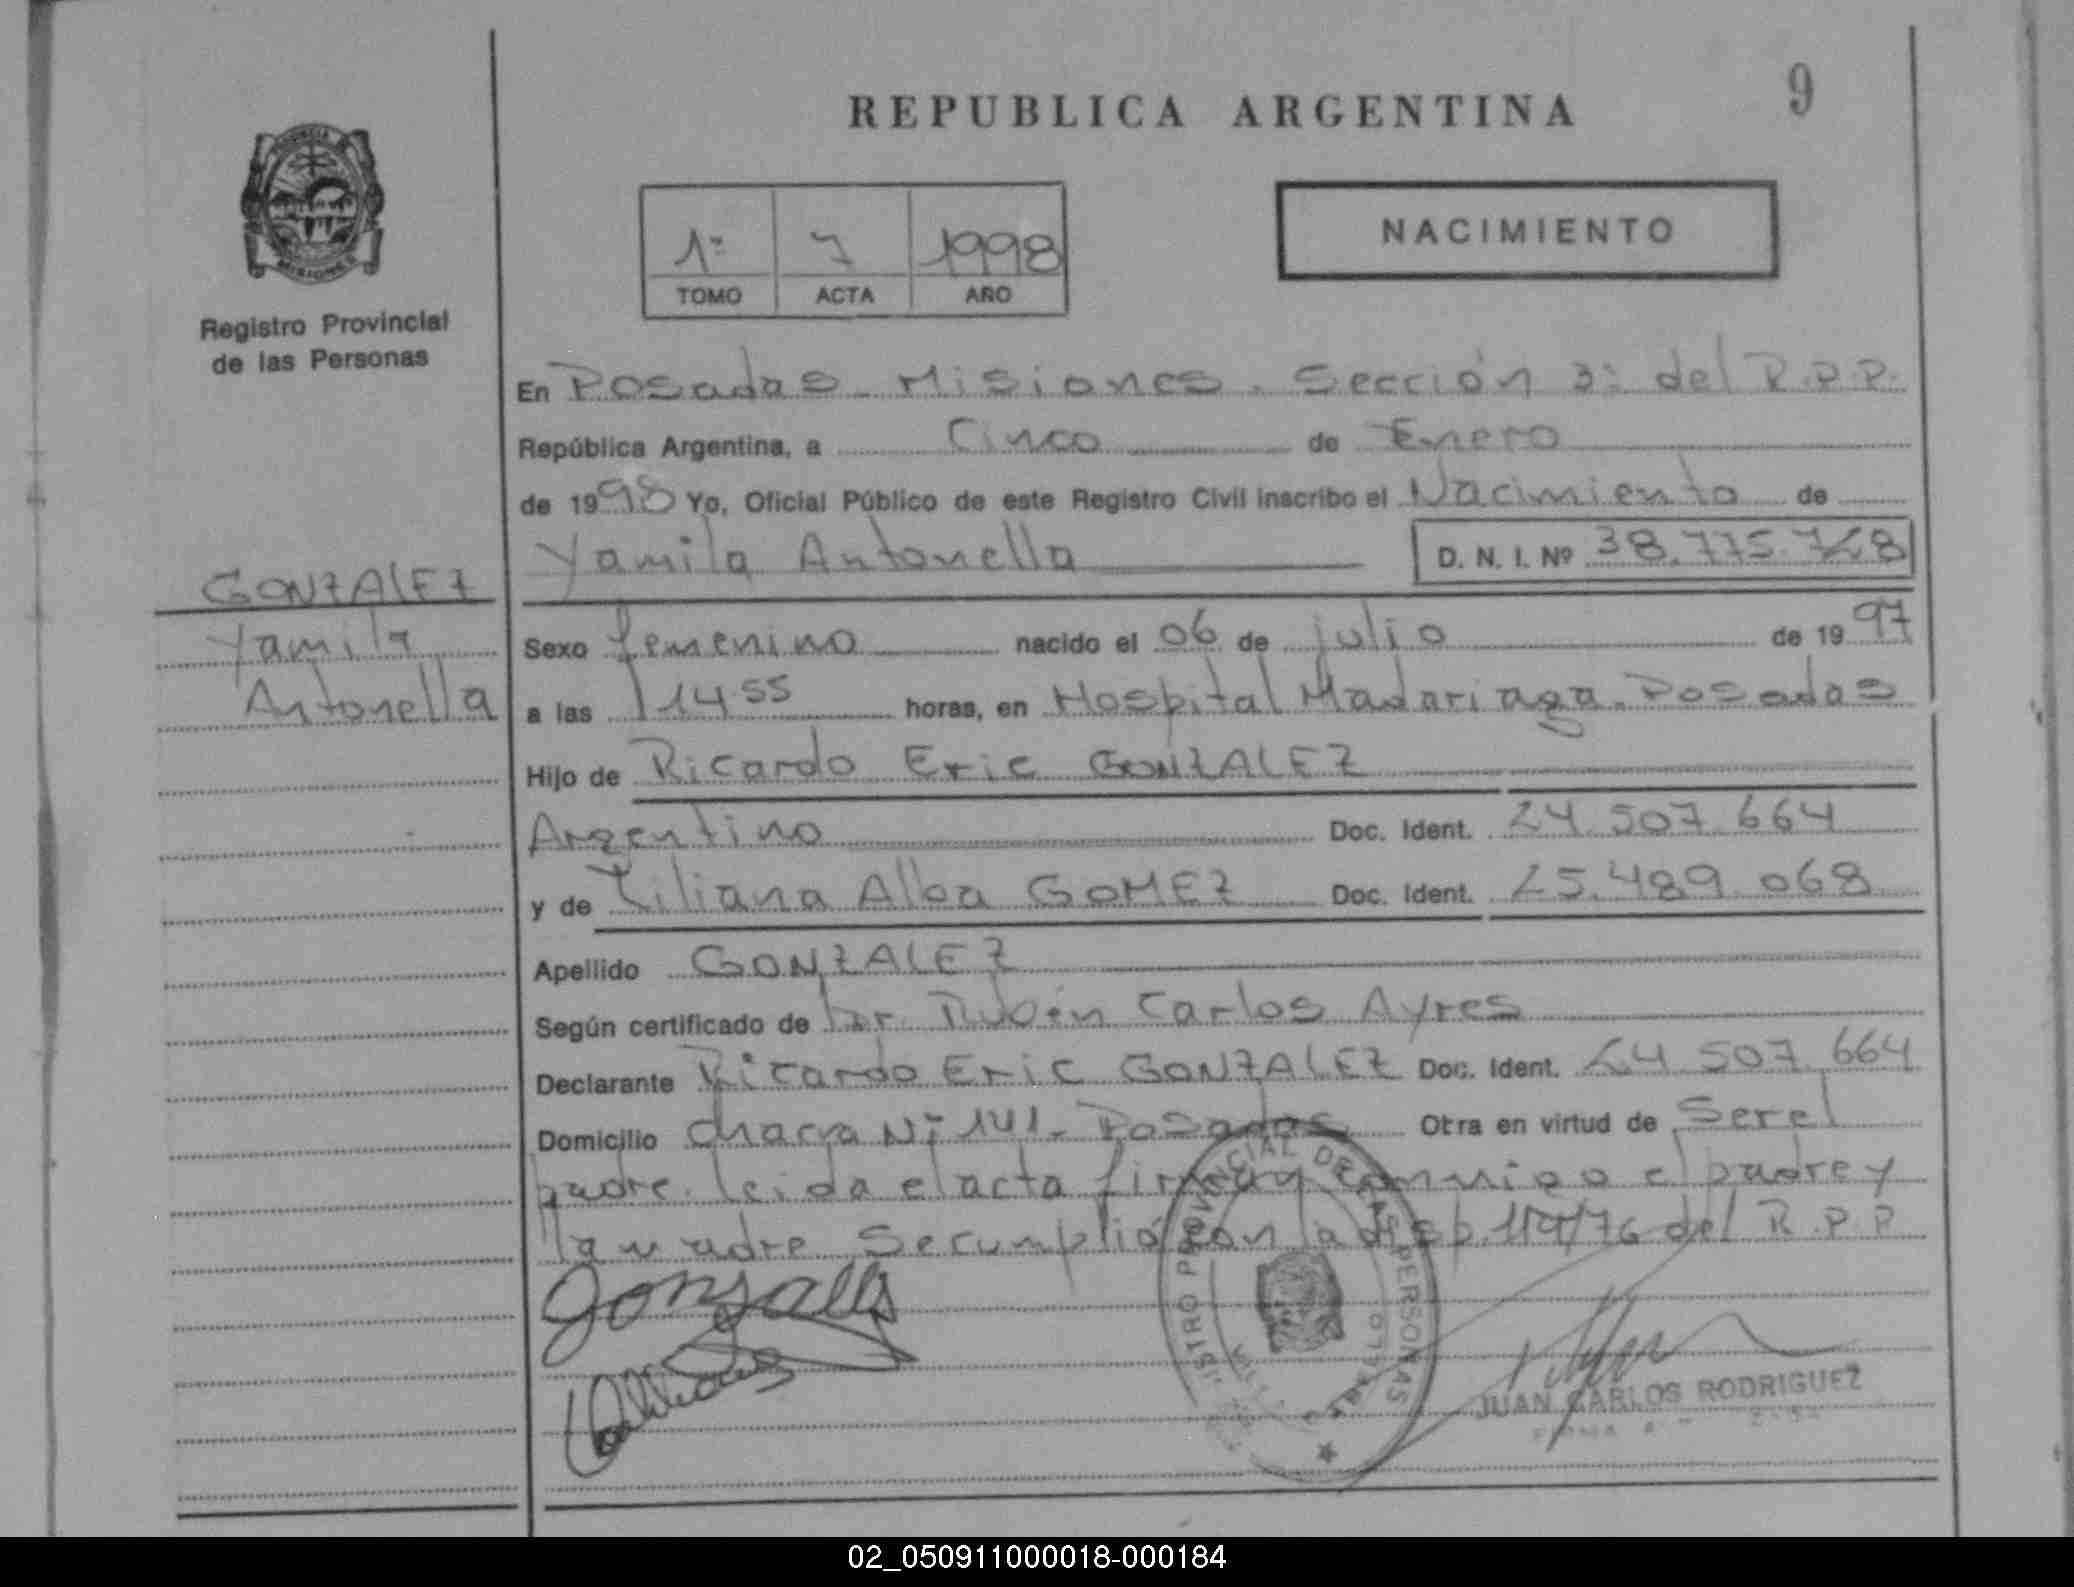 REPUBLICA ARGENTINA
9
PROVINCIA
MISIONES
Registro Provincial
de las Personas
1º 7 1998
TOMO ACTA AÑO
NACIMIENTO
En Posadas - Misiones. Sección 3ª del R.P.P.
República Argentina, a Cinco de Enero
de 1998 Yo, Oficial Público de este Registro Civil inscribo el Nacimiento de
Yamila Antonella D. N. I. Nº 38.775.728
GONZALEZ
Yamila
Antonella
Sexo femenino nacido el 06 de julio de 1997
a las 14 55 horas, en Hospital Madariaga. Posadas
Hijo de Ricardo Eric GONZALEZ
Argentino Doc. Ident. 24.507.664
y de Liliana Alba GOMEZ Doc. Ident. 25.489.068
Apellido GONZALEZ
Según certificado de Dr. Rubén Carlos Ayres
Declarante Ricardo Eric GONZALEZ Doc. Ident. 24.507.664
Domicilio chacra Nº 141 - Posadas Otra en virtud de Ser el
padre. leida el acta firman conmigo el padre y
la madre Se cumplió con la disp. 119/76 del R.P.P.
Gonzalez
JUAN CARLOS RODRIGUEZ
02_050911000018-000184